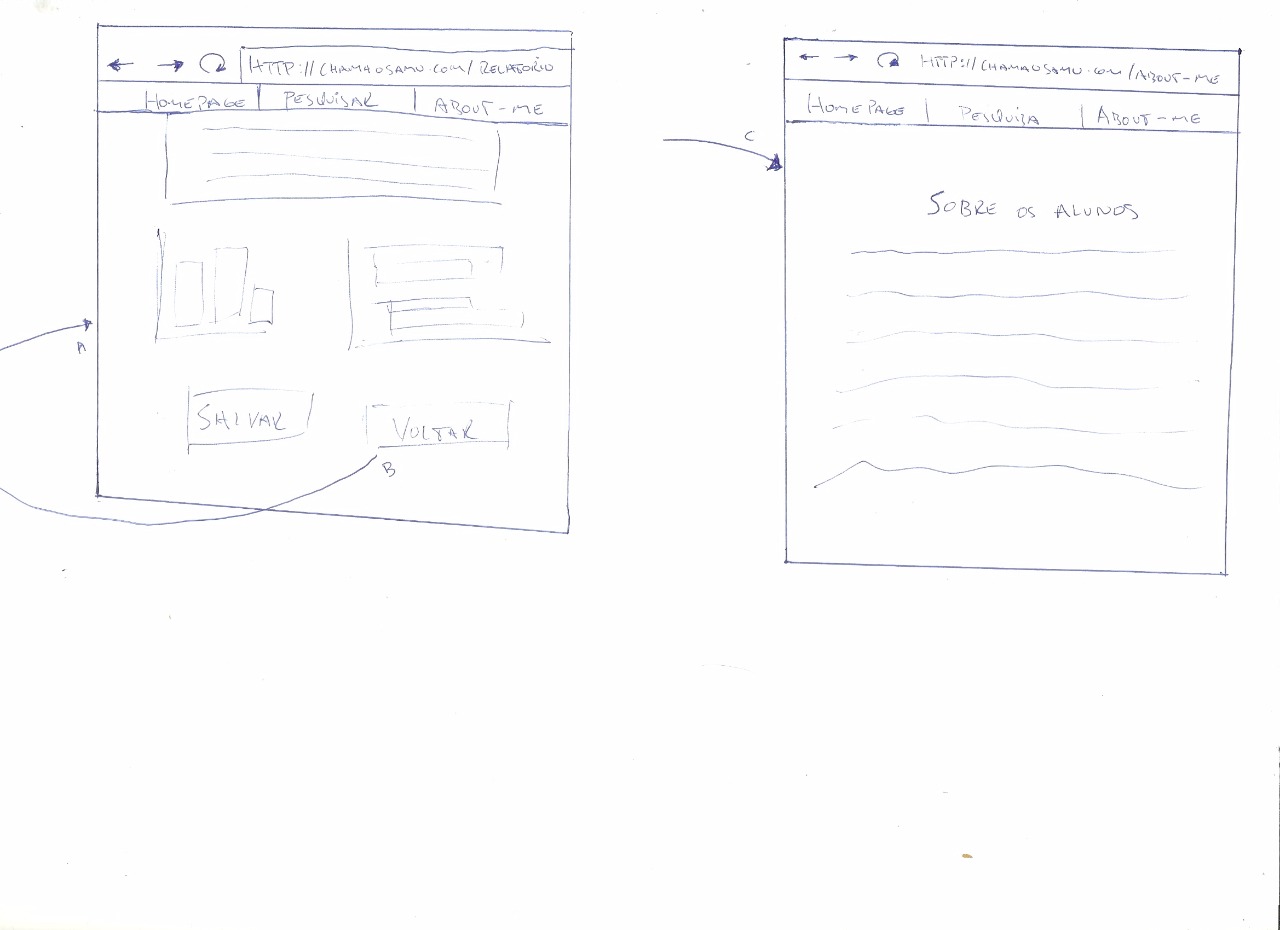 HTTP://CHAMAOSAMU.COM/RELATORIO
HOMEPAGE | PESQUISAR | ABOUT-ME
SALVAR
VOLTAR
A
B
HTTP://CHAMAOSAMU.COM/ABOUT-ME
HOMEPAGE | PESQUISA | ABOUT-ME
C
SOBRE OS ALUNOS